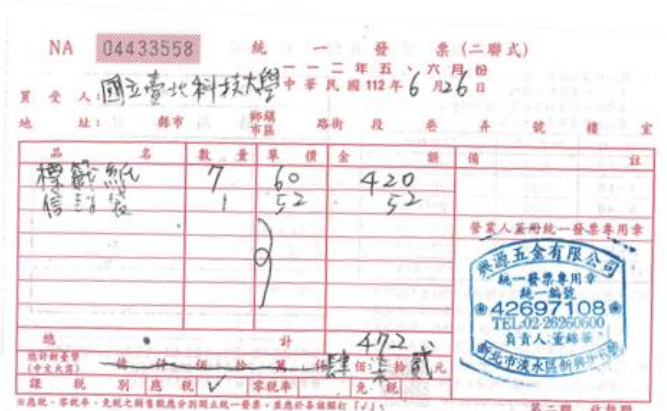 NA 04433558 統一發票(二聯式)
一一二年五、六月份
買受人: 國立臺北科技大學 中華民國112年6月26日
地址: 縣市 鄉鎮市區 路街 段 巷 弄 號 樓 室
品名 數量 單價 金額 備註
標籤紙 7 60 420
信封袋 1 52 52
營業人蓋用統一發票專用章
興源五金有限公司
統一發票專用章
統一編號
42697108
TEL:02-26260600
負責人:董錦華
新北市淡水區新興街
總計 472
總計新臺幣(中文大寫) 億仟佰拾萬仟肆佰柒拾貳元
課稅別 應稅 ✓ 零稅率 免稅
※應稅、零稅率、免稅之銷售額應分別開立統一發票,並應於各該欄打「✓」。
第二聯 收執聯